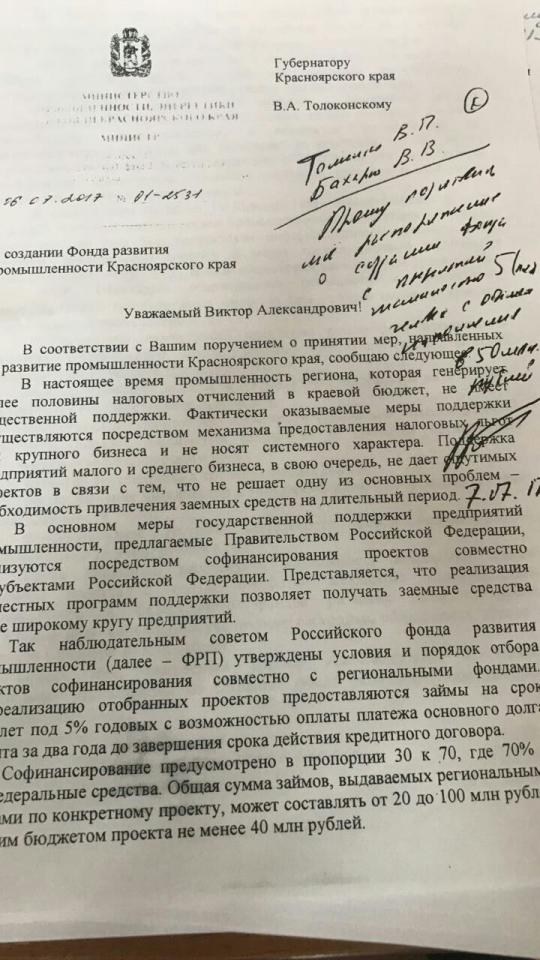 Губернатору
Красноярского края
В.А. Толоконскому
МИНИСТЕРСТВО
КРАСНОЯРСКОГО КРАЯ
МИНИСТР
07.2017 № 01-2531
В. П.
В. В.
Прошу
о
с
5
создании Фонда развития
ромышленности Красноярского края
Уважаемый Виктор Александрович!
В соответствии с Вашим поручением о принятии мер, направленных
развитие промышленности Красноярского края, сообщаю следующее.
50 млн.
рублей
В настоящее время промышленность региона, которая генерирует
лее половины налоговых отчислений в краевой бюджет, не имеет
щественной поддержки. Фактически оказываемые меры поддержки
уществляются посредством механизма предоставления налоговых льгот
крупного бизнеса и не носят системного характера. Поддержка
едприятий малого и среднего бизнеса, в свою очередь, не дает ощутимых
фектов в связи с тем, что не решает одну из основных проблем –
обходимость привлечения заемных средств на длительный период.
7.07.17
В основном меры государственной поддержки предприятий
мышленности, предлагаемые Правительством Российской Федерации,
лизуются посредством софинансирования проектов совместно
субъектами Российской Федерации. Представляется, что реализация
местных программ поддержки позволяет получать заемные средства
е широкому кругу предприятий.
Так наблюдательным советом Российского фонда развития
мышленности (далее – ФРП) утверждены условия и порядок отбора
ктов софинансирования совместно с региональными фондами.
реализацию отобранных проектов предоставляются займы на срок
лет под 5% годовых с возможностью оплаты платежа основного долга
ита за два года до завершения срока действия кредитного договора.
Софинансирование предусмотрено в пропорции 30 к 70, где 70%
едеральные средства. Общая сумма займов, выдаваемых региональным
ами по конкретному проекту, может составлять от 20 до 100 млн рубл
им бюджетом проекта не менее 40 млн рублей.